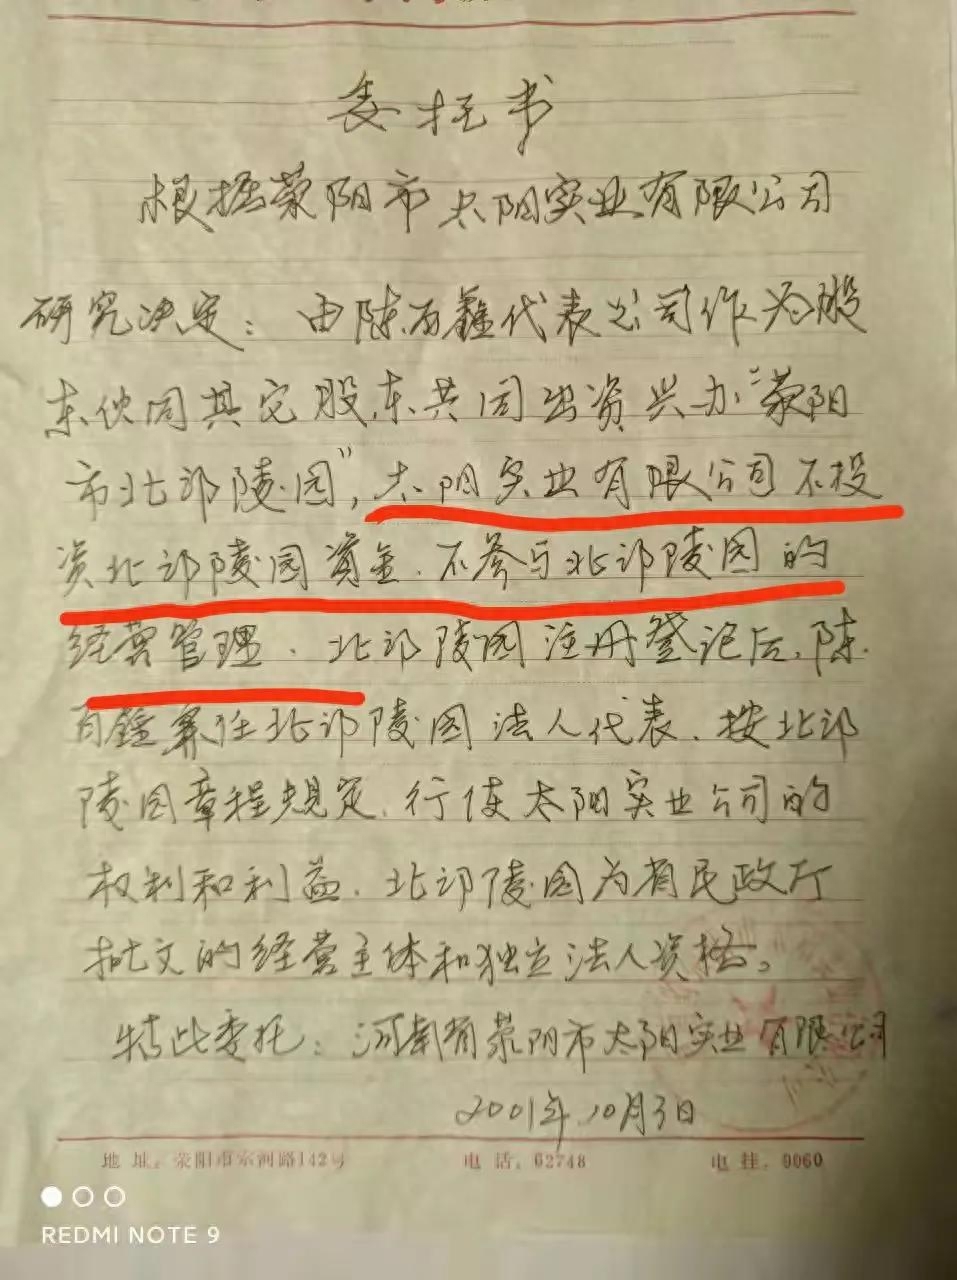 委托书
根据荥阳市太阳实业有限公司
研究决定：由陈百鑫代表公司作为股
东伙同其它股东共同出资兴办“荥阳
市北邙陵园”，太阳实业有限公司不投
资北邙陵园资金.不参与北邙陵园的
经营管理.北邙陵园注册登记后,陈
百鑫兼任北邙陵园法人代表.按北邙
陵园章程规定.行使太阳实业公司的
权利和利益.北邙陵园为省民政厅
批文的经营主体和独立法人资格。
特此委托：河南省荥阳市太阳实业有限公司
2001年10月3日
地址：荥阳市索河路142号 电话：62748 电挂：9060
REDMI NOTE 9